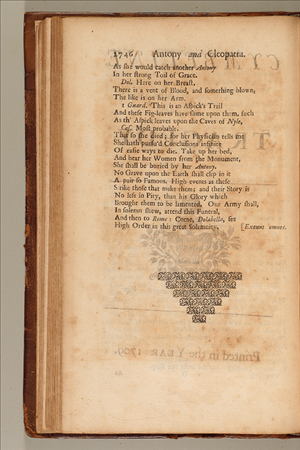 2746 Antony and Cleopatra.
As she would catch another Antony
In her strong Toil of Grace.
Dol. Here on her Breast,
There is a vent of Blood, and something blown,
The like is on her Arm.
1 Guard. This is an Aspick's Trail
And these Fig-leaves have slime upon them, such
As th' Aspick leaves upon the Caves of Nyle.
Cæs. Most probable
That so she died; for her Physician tells me
She hath pursu'd Conclusions infinite
Of easie ways to die. Take up her bed,
And bear her Women from the Monument,
She shall be buried by her Antony.
No Grave upon the Earth shall clip in it
A pair so Famous. High events as these
Strike those that make them; and their Story is
No less in Pity, than his Glory which
Brought them to be lamented. Our Army shall,
In solemn shew, attend this Funeral,
And then to Rome: Come, Dolabella, see
High Order in this great Solemnity. [Exeunt omnes.
Printed in the YEAR 1709.